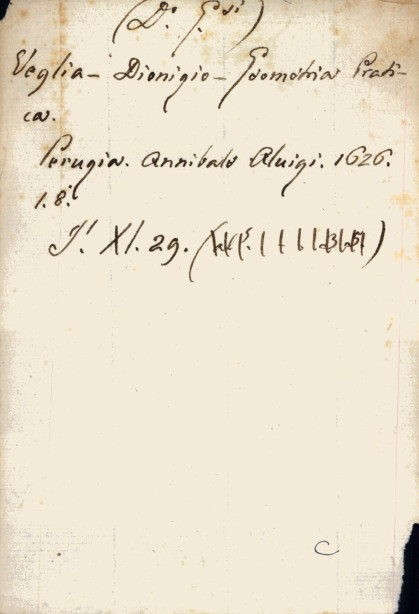 Veglia - Dionigio - Geometria Prati-
ca.
Perugia. Annibale Aluigi. 1626.
1. 8.°
XI. 29.
C